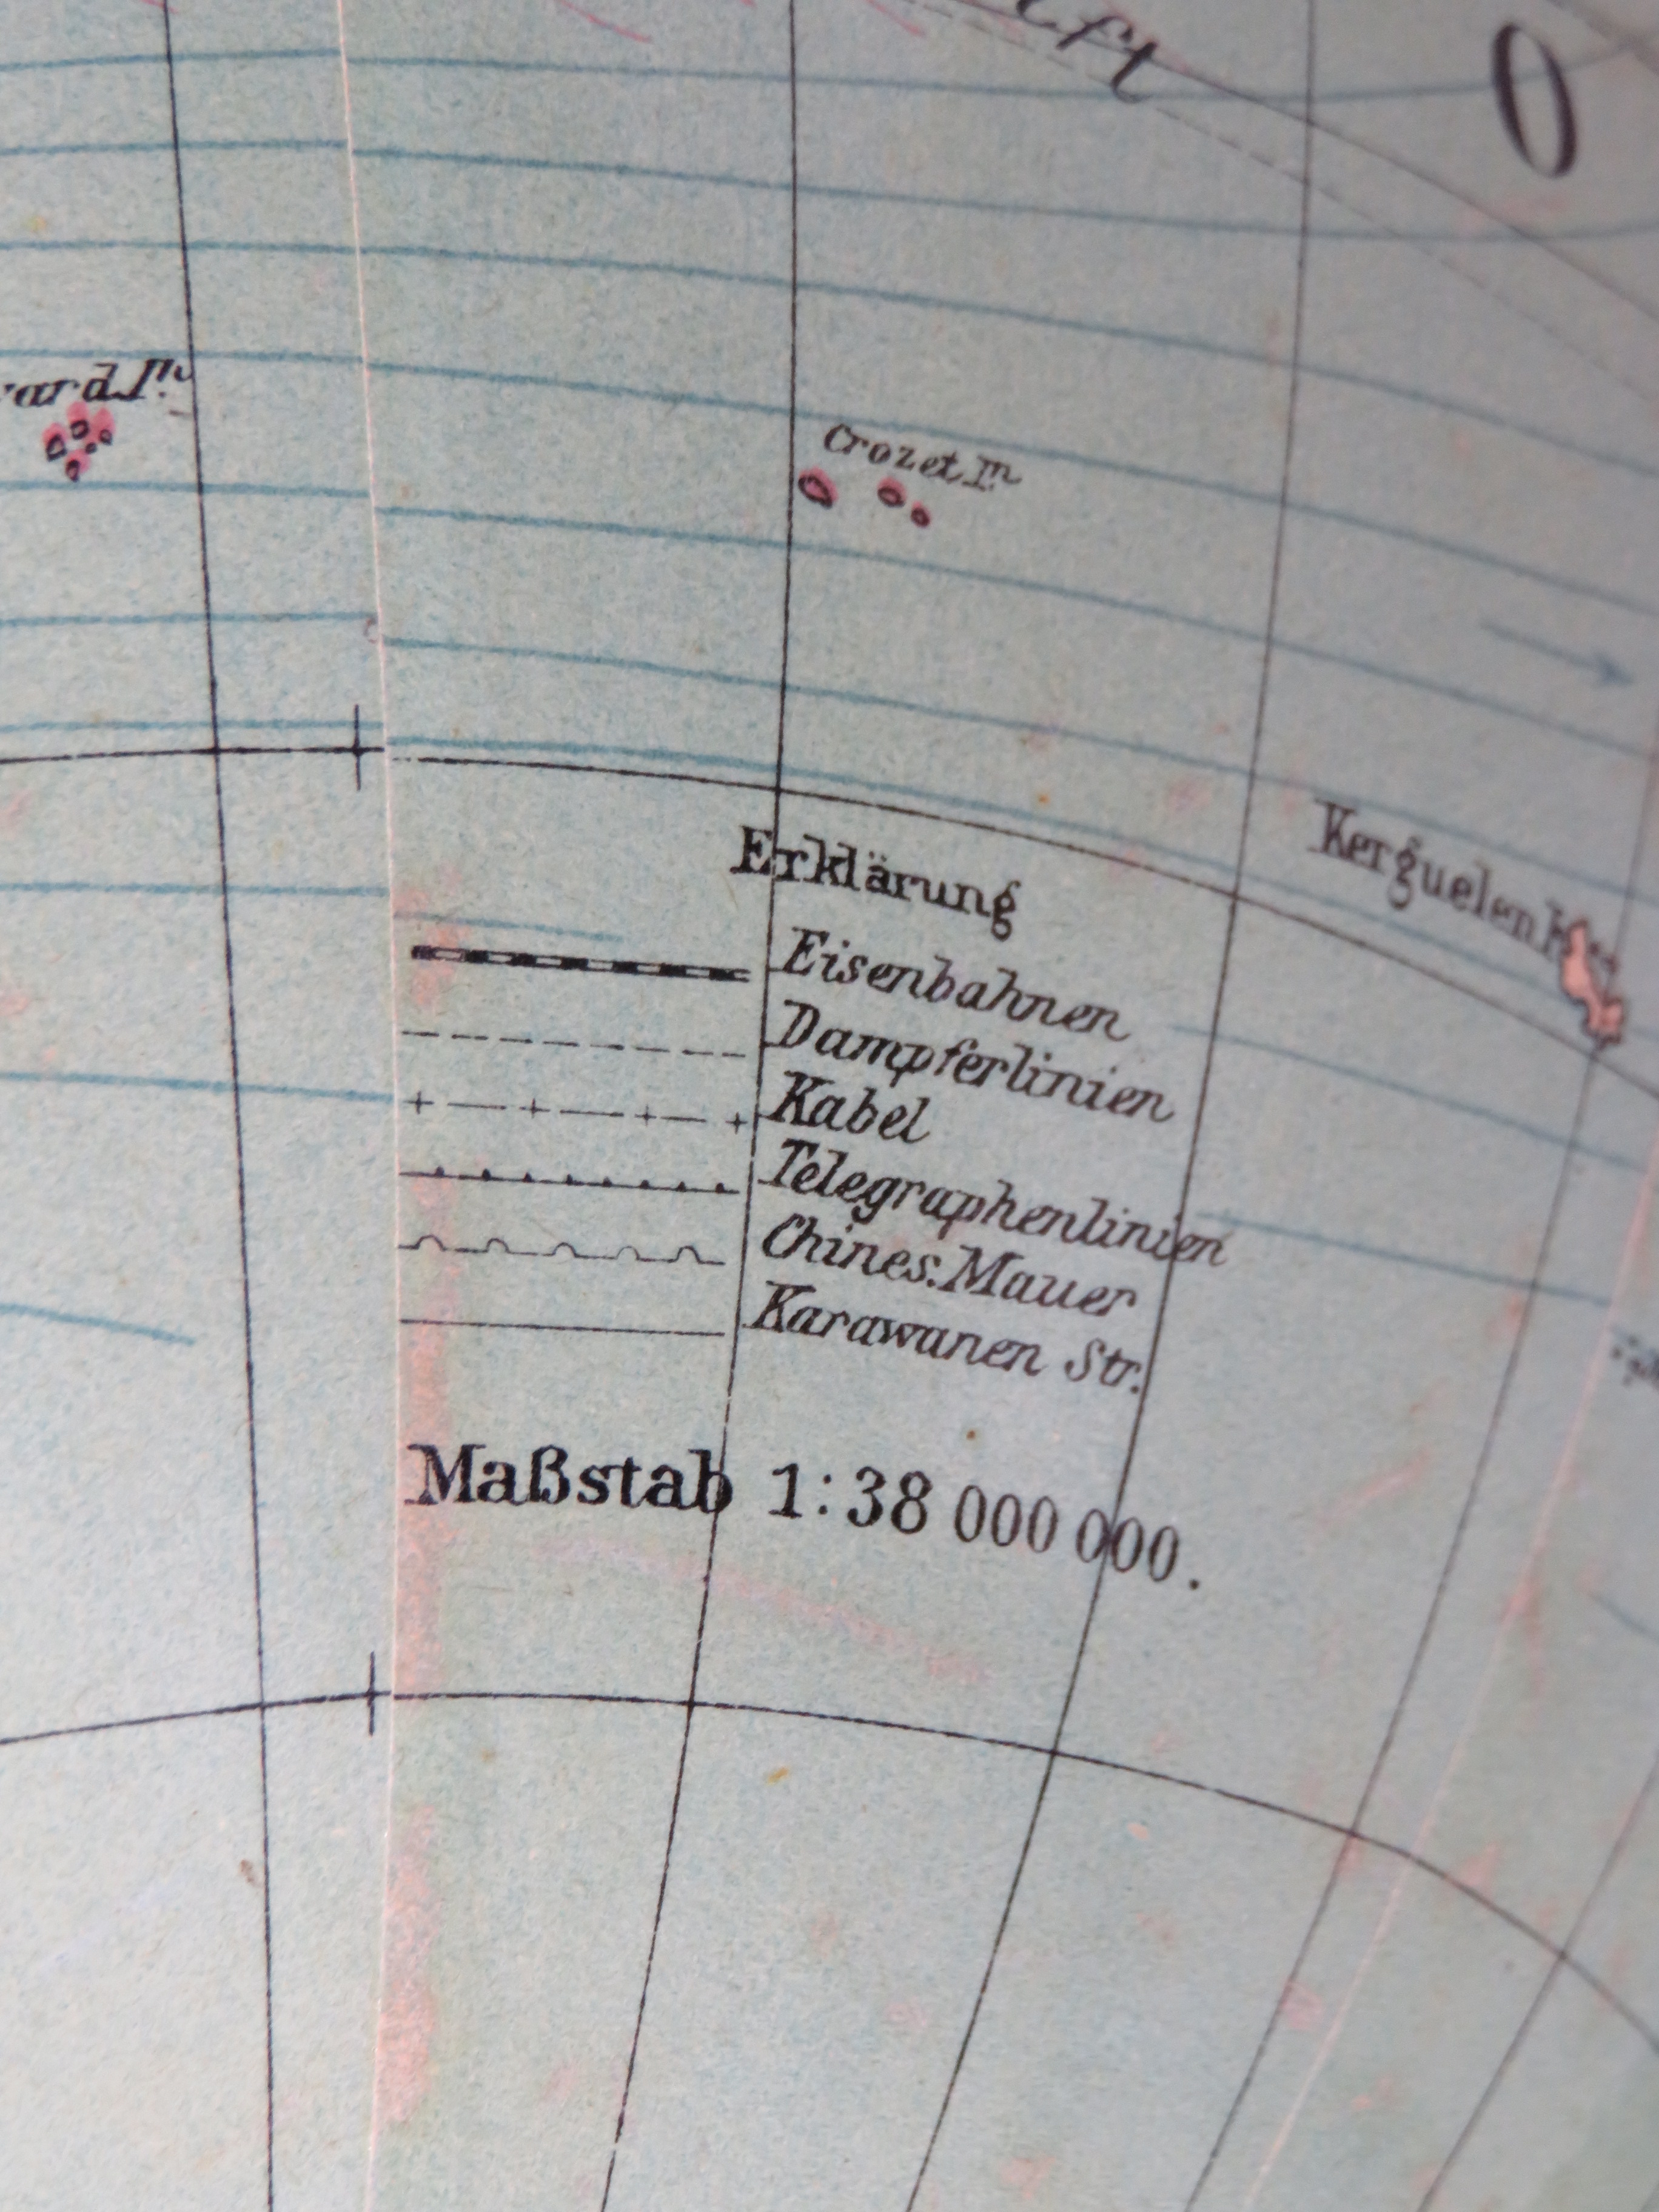 Crozet Iⁿ
Kerguelen
Erklärung
Eisenbahnen
Dampferlinien
Kabel
Telegraphenlinien
Chines. Mauer
Karawanen Str.
Maßstab 1:38 000 000.